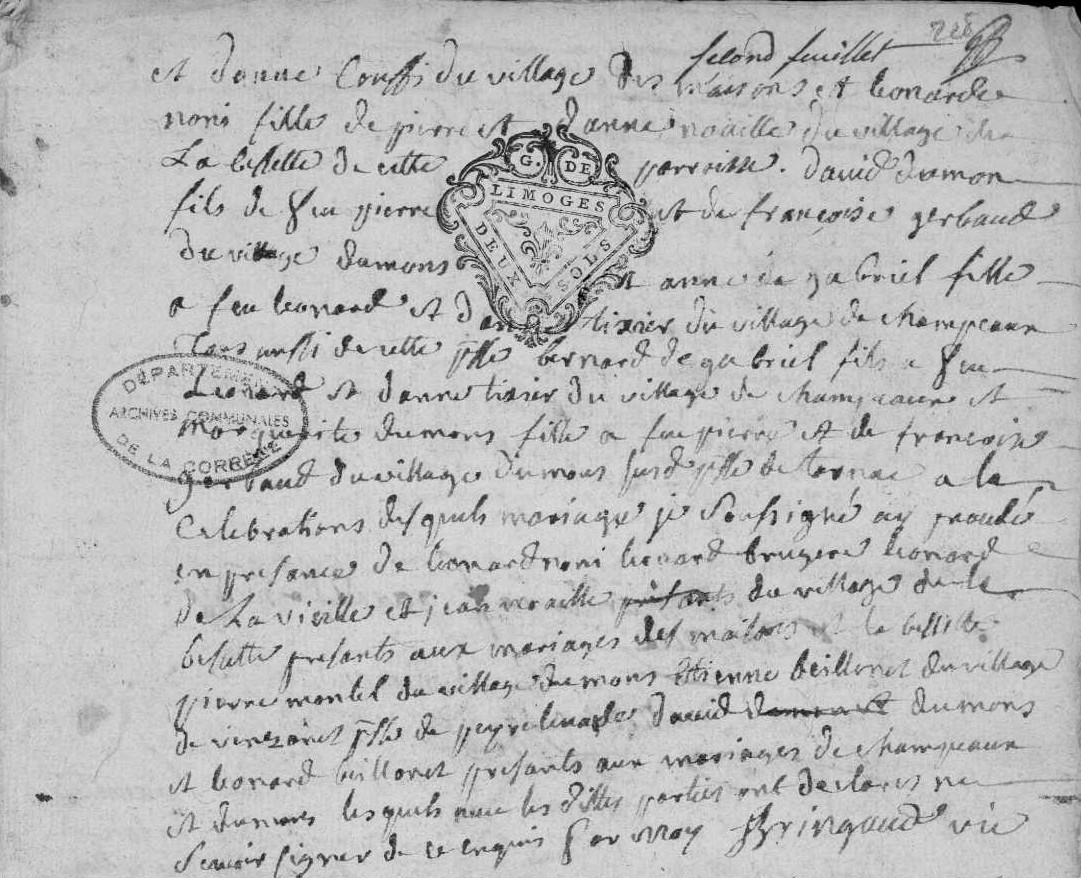 second feuillet
et d'anne Couffi du village des maisons et leonarde
noni fille de pierre et d'anne noaille du village de
La besette de cette parroisse. david dumon
fils de feu pierre et de françoise gerbaud
du village dumons et anne de gabriel fille
a feu leonard et d'anne tixier du village de champeaux
tous aussi de cette psse bernard de gabriel fils a feu
Leonard et d'anne tixier du village de champeaux et
Marguerite dumons fille a feu pierre et de françoise
gerbaud du village dumons susd psse de tarnac a la
Celebrations desquels mariage je soussigné ay procédé
en presance de leonard noni leonard brugere leonard
de La vieille et jean noaille du village de la
besette presants aux mariages des maisons et la besette
pierre montel du village dumons etienne beillonet du village
de psse de peyrelevade david dumons
et leonard beillonet presants aux mariages de champeaux
et dumons lesquels avec les dittes parties ont declares ne
scavoir signer de ce enquis par moy Bringaud vic
G. DE
LIMOGES
DEUX SOLS
DÉPARTEMENT
ARCHIVES COMMUNALES
DE LA CORRÈZE